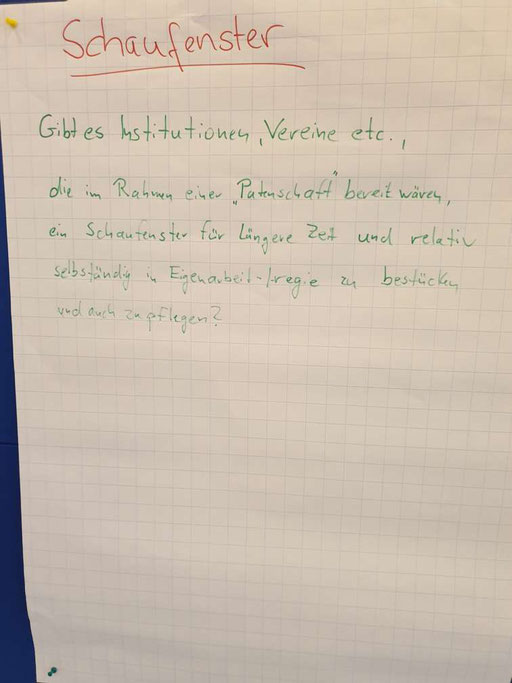 Schaufenster
Gibt es Institutionen, Vereine etc.,
die im Rahmen einer „Patenschaft" bereit wären,
ein Schaufenster für längere Zeit und relativ
selbständig in Eigenarbeit-/regie zu bestücken
und auch zu pflegen?